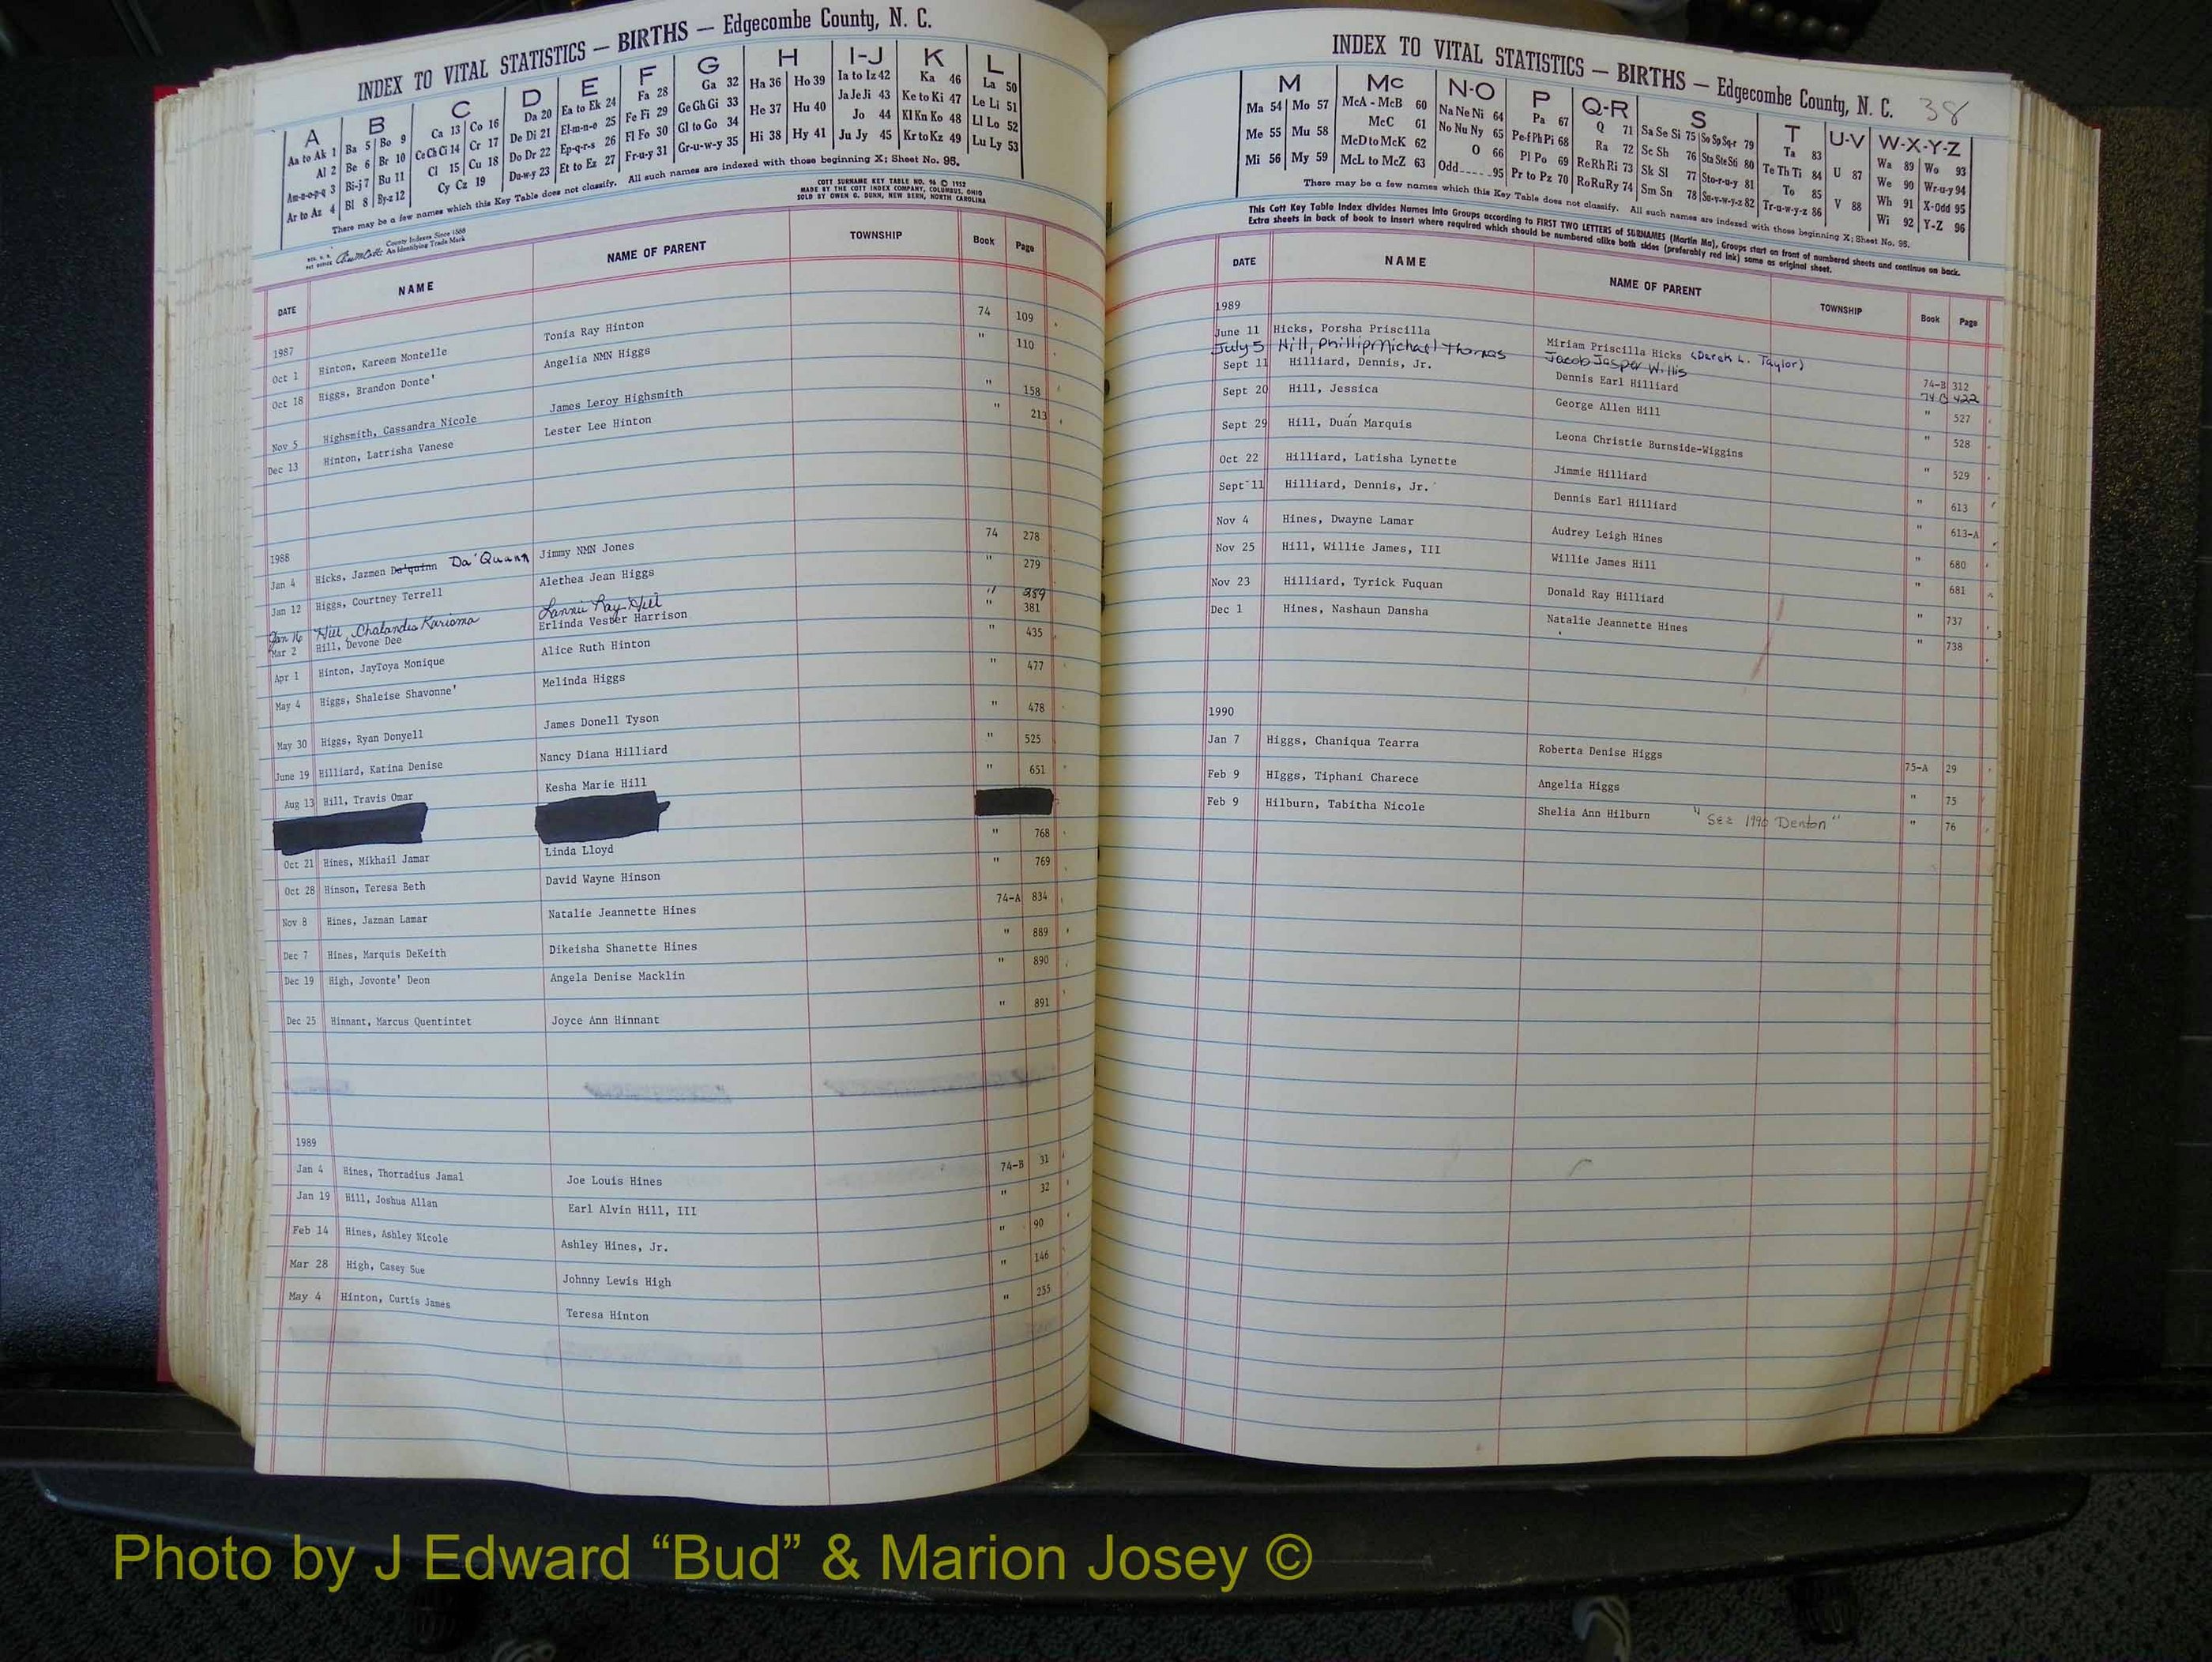 INDEX TO VITAL STATISTICS — BIRTHS — Edgecombe County, N. C.
A B C D E F G H I-J K L
Aa to Ak 1 Ba 5 Bo 9 Ca 13 Co 16 Da 20 Ea to Ek 24 Fa 28 Ga 32 Ha 36 Ho 39 Ia to Iz 42 Ka 46 La 50
Al 2 Be 6 Br 10 Ce Ch Ci 14 Cr 17 De Di 21 El-m-n-o 25 Fe Fi 29 Ge Gh Gi 33 He 37 Hu 40 Ja Je Ji 43 Ke to Ki 47 Le Li 51
Am-n-o-p-q 3 Bi-j 7 Bu 11 Cl 15 Cu 18 Do Dr 22 Ep-q-r-s 26 Fl Fo 30 Gl to Go 34 Hi 38 Hy 41 Jo 44 Kl Kn Ko 48 Ll Lo 52
Ar to Az 4 Bl 8 By-z 12 Cy Cz 19 Du-w-y 23 Et to Ez 27 Fr-u-y 31 Gr-u-w-y 35 Ju Jy 45 Kr to Kz 49 Lu Ly 53
There may be a few names which this Key Table does not classify. All such names are indexed with those beginning X; Sheet No. 95.
COTT SURNAME KEY TABLE NO. 96 © 1952
MADE BY THE COTT INDEX COMPANY, COLUMBUS, OHIO
SOLD BY OWEN G. DUNN, NEW BERN, NORTH CAROLINA
County Indexes Since 1888
An Identifying Trade Mark
DATE NAME NAME OF PARENT TOWNSHIP Book Page
1987
Oct 1 Hinton, Kareem Montelle Tonia Ray Hinton 74 109
Oct 18 Higgs, Brandon Donte' Angelia NMN Higgs " 110
Nov 5 Highsmith, Cassandra Nicole James Leroy Highsmith " 158
Dec 13 Hinton, Latrisha Vanese Lester Lee Hinton " 213
1988
Jan 4 Hicks, Jazmen Da'quinn Da'Quann Jimmy NMN Jones 74 278
Jan 12 Higgs, Courtney Terrell Alethea Jean Higgs " 279
Jan 16 Hill, Chalandis Karisma Lonnie Ray Hill "
Mar 2 Hill, Devone Dee Erlinda Vester Harrison " 381
Apr 1 Hinton, JayToya Monique Alice Ruth Hinton " 435
May 4 Higgs, Shaleise Shavonne' Melinda Higgs " 477
May 30 Higgs, Ryan Donyell James Donell Tyson " 478
June 19 Hilliard, Katina Denise Nancy Diana Hilliard " 525
Aug 13 Hill, Travis Omar Kesha Marie Hill " 651
Oct 21 Hines, Mikhail Jamar Linda Lloyd " 768
Oct 28 Hinson, Teresa Beth David Wayne Hinson " 769
Nov 8 Hines, Jazman Lamar Natalie Jeannette Hines 74-A 834
Dec 7 Hines, Marquis DeKeith Dikeisha Shanette Hines " 889
Dec 19 High, Jovonte' Deon Angela Denise Macklin " 890
Dec 25 Hinnant, Marcus Quentintet Joyce Ann Hinnant " 891
1989
Jan 4 Hines, Thorradius Jamal Joe Louis Hines 74-B 31
Jan 19 Hill, Joshua Allan Earl Alvin Hill, III " 32
Feb 14 Hines, Ashley Nicole Ashley Hines, Jr. " 90
Mar 28 High, Casey Sue Johnny Lewis High " 146
May 4 Hinton, Curtis James Teresa Hinton " 255
INDEX TO VITAL STATISTICS — BIRTHS — Edgecombe County, N. C. 38
M Mc N-O P Q-R S T U-V W-X-Y-Z
Ma 54 Mo 57 McA - McB 60 Na Ne Ni 64 Pa 67 Q 71 Sa Se Si 75 So Sp Sq-r 79 Ta 83 U 87 Wa 89 Wo 93
Me 55 Mu 58 McC 61 No Nu Ny 65 Pe-f Ph Pi 68 Ra 72 Sc Sh 76 Sta Ste Sti 80 Te Th Ti 84 V 88 We 90 Wr-u-y 94
Mi 56 My 59 McD to McK 62 O 66 Pl Po 69 Re Rh Ri 73 Sk Sl 77 Sto-r-u-y 81 To 85 Wh 91 X-Odd 95
McL to McZ 63 Odd 95 Pr to Pz 70 Ro Ru Ry 74 Sm Sn 78 Su-v-w-y-z 82 Tr-u-w-y-z 86 Wi 92 Y-Z 96
There may be a few names which this Key Table does not classify. All such names are indexed with those beginning X; Sheet No. 95.
This Cott Key Table Index divides Names into Groups according to FIRST TWO LETTERS of SURNAMES (Martin Ma). Groups start on front of numbered sheets and continue on back.
Extra sheets in back of book to insert where required which should be numbered alike both sides (preferably red ink) same as original sheet.
DATE NAME NAME OF PARENT TOWNSHIP Book Page
1989
June 11 Hicks, Porsha Priscilla Miriam Priscilla Hicks (Derek L. Taylor) 74-B 312
July 5 Hill, Phillip Michael Thomas Jacob Jasper Willis 74 B 422
Sept 11 Hilliard, Dennis, Jr. Dennis Earl Hilliard " 527
Sept 20 Hill, Jessica George Allen Hill " 528
Sept 29 Hill, Duán Marquis Leona Christie Burnside-Wiggins " 529
Oct 22 Hilliard, Latisha Lynette Jimmie Hilliard " 613
Sept 11 Hilliard, Dennis, Jr. Dennis Earl Hilliard " 613-A
Nov 4 Hines, Dwayne Lamar Audrey Leigh Hines " 680
Nov 25 Hill, Willie James, III Willie James Hill " 681
Nov 23 Hilliard, Tyrick Fuquan Donald Ray Hilliard " 737
Dec 1 Hines, Nashaun Dansha Natalie Jeannette Hines " 738
1990
Jan 7 Higgs, Chaniqua Tearra Roberta Denise Higgs 75-A 29
Feb 9 HIggs, Tiphani Charece Angelia Higgs " 75
Feb 9 Hilburn, Tabitha Nicole Shelia Ann Hilburn "See 1990 Denton" " 76
Photo by J Edward “Bud” & Marion Josey ©